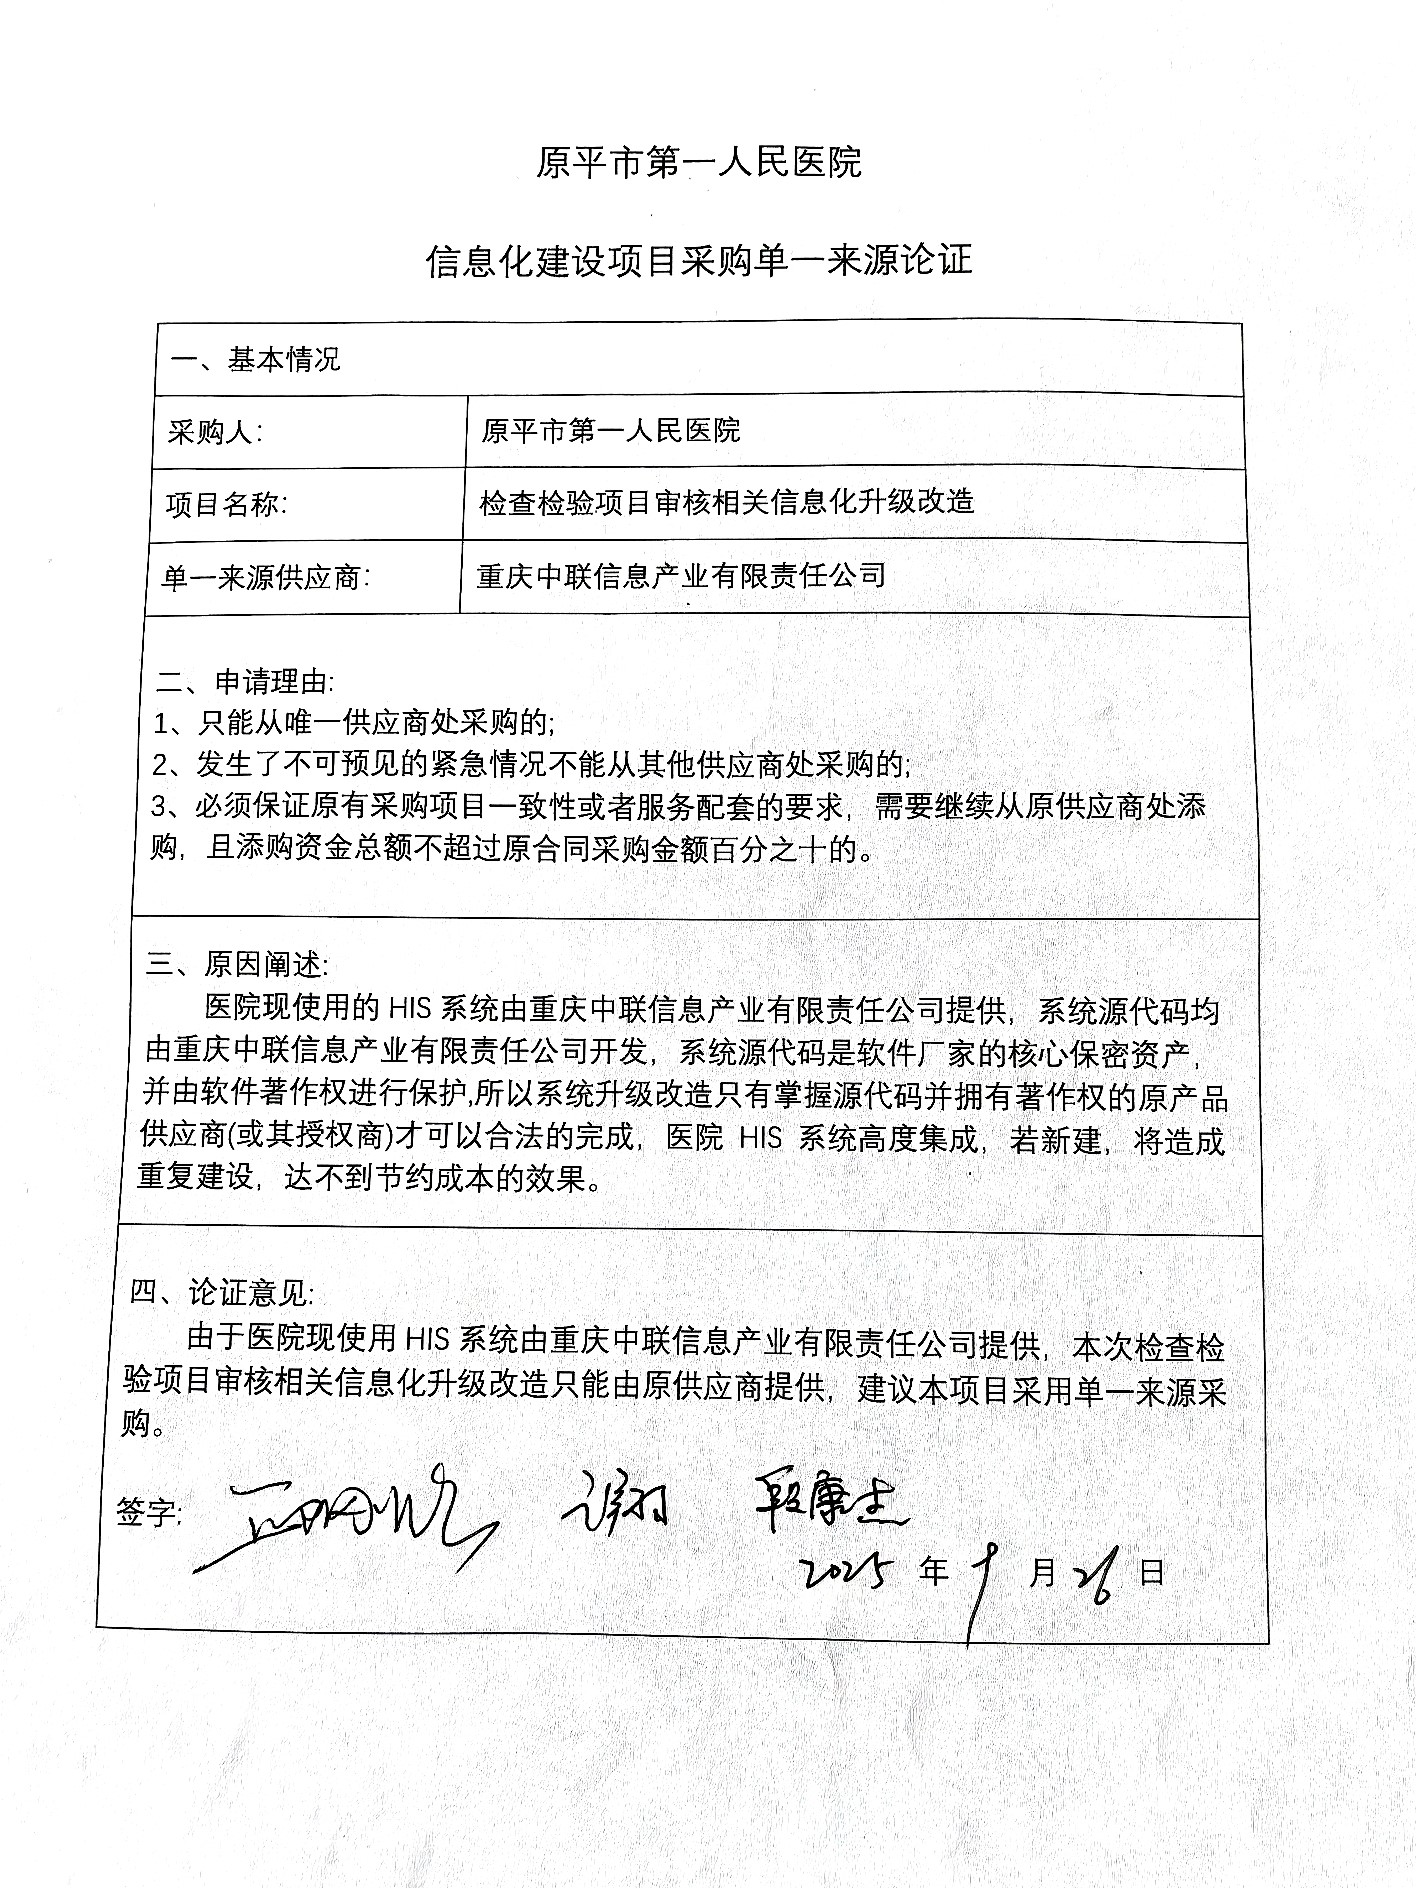 原平市第一人民医院
信息化建设项目采购单一来源论证
一、基本情况
采购人: 原平市第一人民医院
项目名称: 检查检验项目审核相关信息化升级改造
单一来源供应商: 重庆中联信息产业有限责任公司
二、申请理由:
1、只能从唯一供应商处采购的;
2、发生了不可预见的紧急情况不能从其他供应商处采购的;
3、必须保证原有采购项目一致性或者服务配套的要求，需要继续从原供应商处添
购，且添购资金总额不超过原合同采购金额百分之十的。
三、原因阐述:
医院现使用的 HIS 系统由重庆中联信息产业有限责任公司提供，系统源代码均
由重庆中联信息产业有限责任公司开发，系统源代码是软件厂家的核心保密资产，
并由软件著作权进行保护,所以系统升级改造只有掌握源代码并拥有著作权的原产品
供应商(或其授权商)才可以合法的完成，医院 HIS 系统高度集成，若新建，将造成
重复建设，达不到节约成本的效果。
四、论证意见:
由于医院现使用 HIS 系统由重庆中联信息产业有限责任公司提供，本次检查检
验项目审核相关信息化升级改造只能由原供应商提供，建议本项目采用单一来源采
购。
签字: 段康杰
2025 年 9 月 26 日